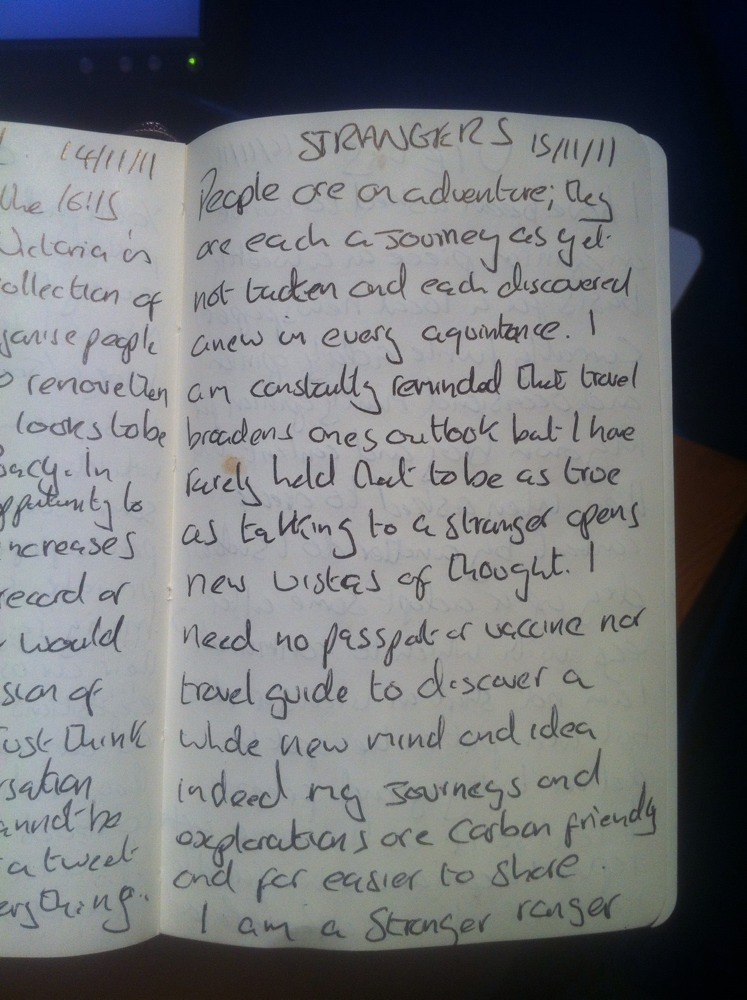 14/11/11
the 16:15
Victoria is
ollection of
ganise people
o remove them
looks to be
acy. In
pportunity to
ncreases
record or
would
sion of
Just think
rsation
annot be
a tweet
erything..
STRANGERS 15/11/11
People are an adventure; they
are each a journey as yet
not tacken and each discovered
anew in every aquintance. I
am constantly reminded that travel
broadens ones outlook but I have
rarely held that to be as true
as talking to a stranger opens
new vistas of thought. I
need no passport or vaccine nor
travel guide to discover a
whole new mind and idea
indeed my journeys and
explorations are carbon friendly
and far easier to share.
I am a Stranger ranger